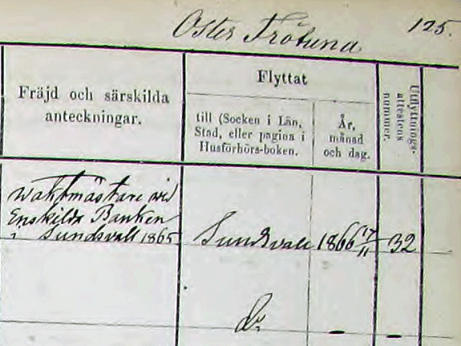 Öster Trötuna 125.
Fräjd och särskilda
anteckningar.
Flyttat
till (Socken i Län,
Stad, eller pagina i
Husförhörs-boken.
År,
månad
och dag.
Utflyttnings-
attestens
nummer.
waktmästare wid
Enskilda Banken
i Sundsvall 1865
Sundsvall 1866 17/11 32
do